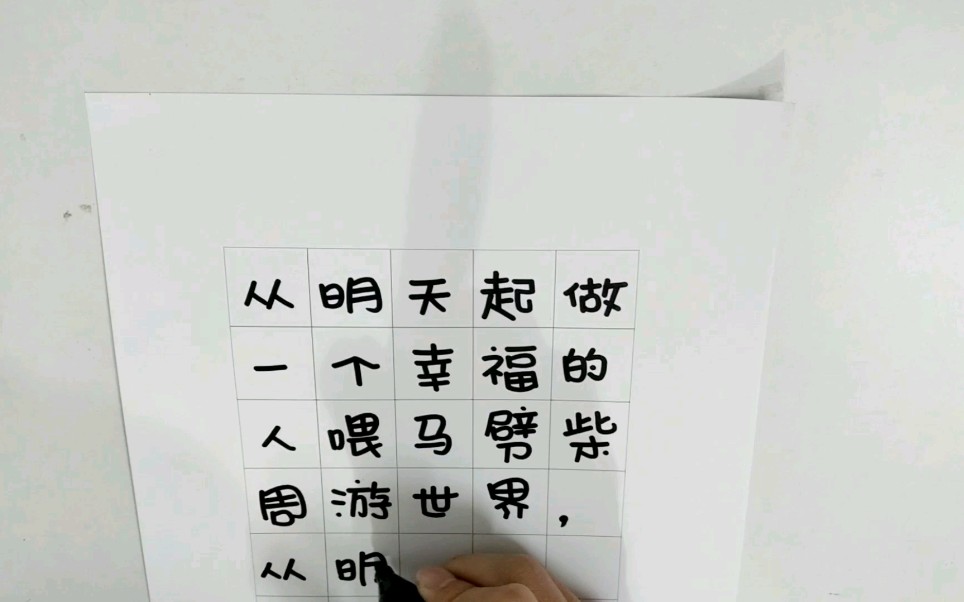 从明天起做
一个幸福的
人喂马劈柴
周游世界，
从明